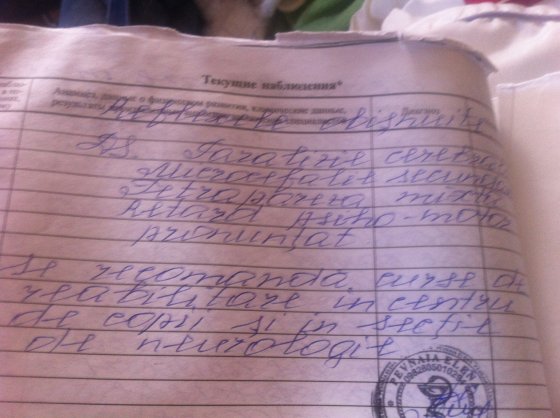 Текущие наблюдения*
Анамнез, данные о физическом развитии, клинические данные,
результаты
Диагноз
Reflexele obișnuite
DS. Paralizie cerebrală
Microcefalie secundară
Tetrapareza mixtă
Retard psiho-motor
pronunțat
Se recomandă curse de
reabilitare în centru
de copii și în secție
de neurologie
PEVNAIA ELENA